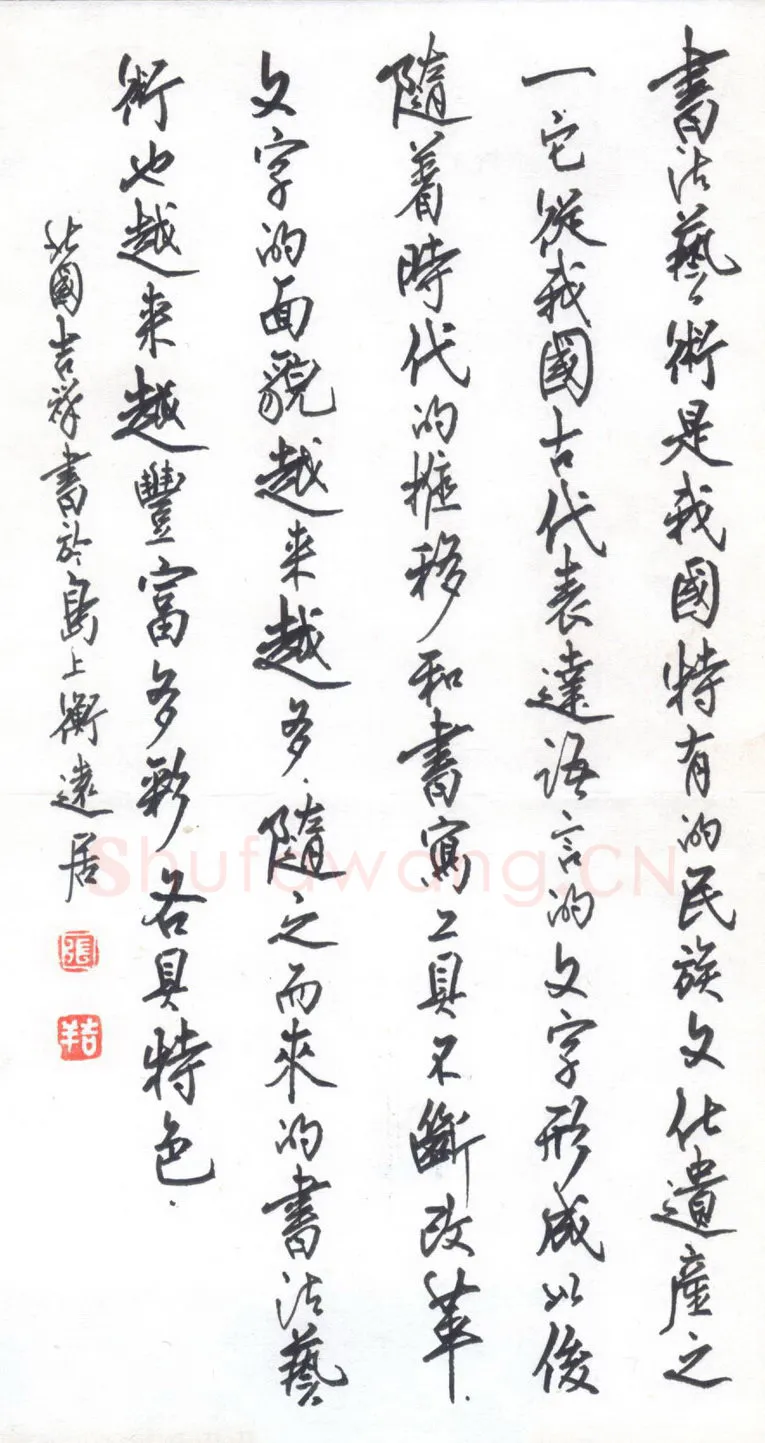 書法藝術是我國特有的民族文化遺産之
一它從我國古代表達語言的文字形成以後
隨着時代的推移和書寫工具不斷改革.
文字的面貌越来越多.隨之而來的書法藝
術也越来越豐富多彩各具特色.
北國吉祥書於島上衡遠居
張
吉羊
Shufawang.CN